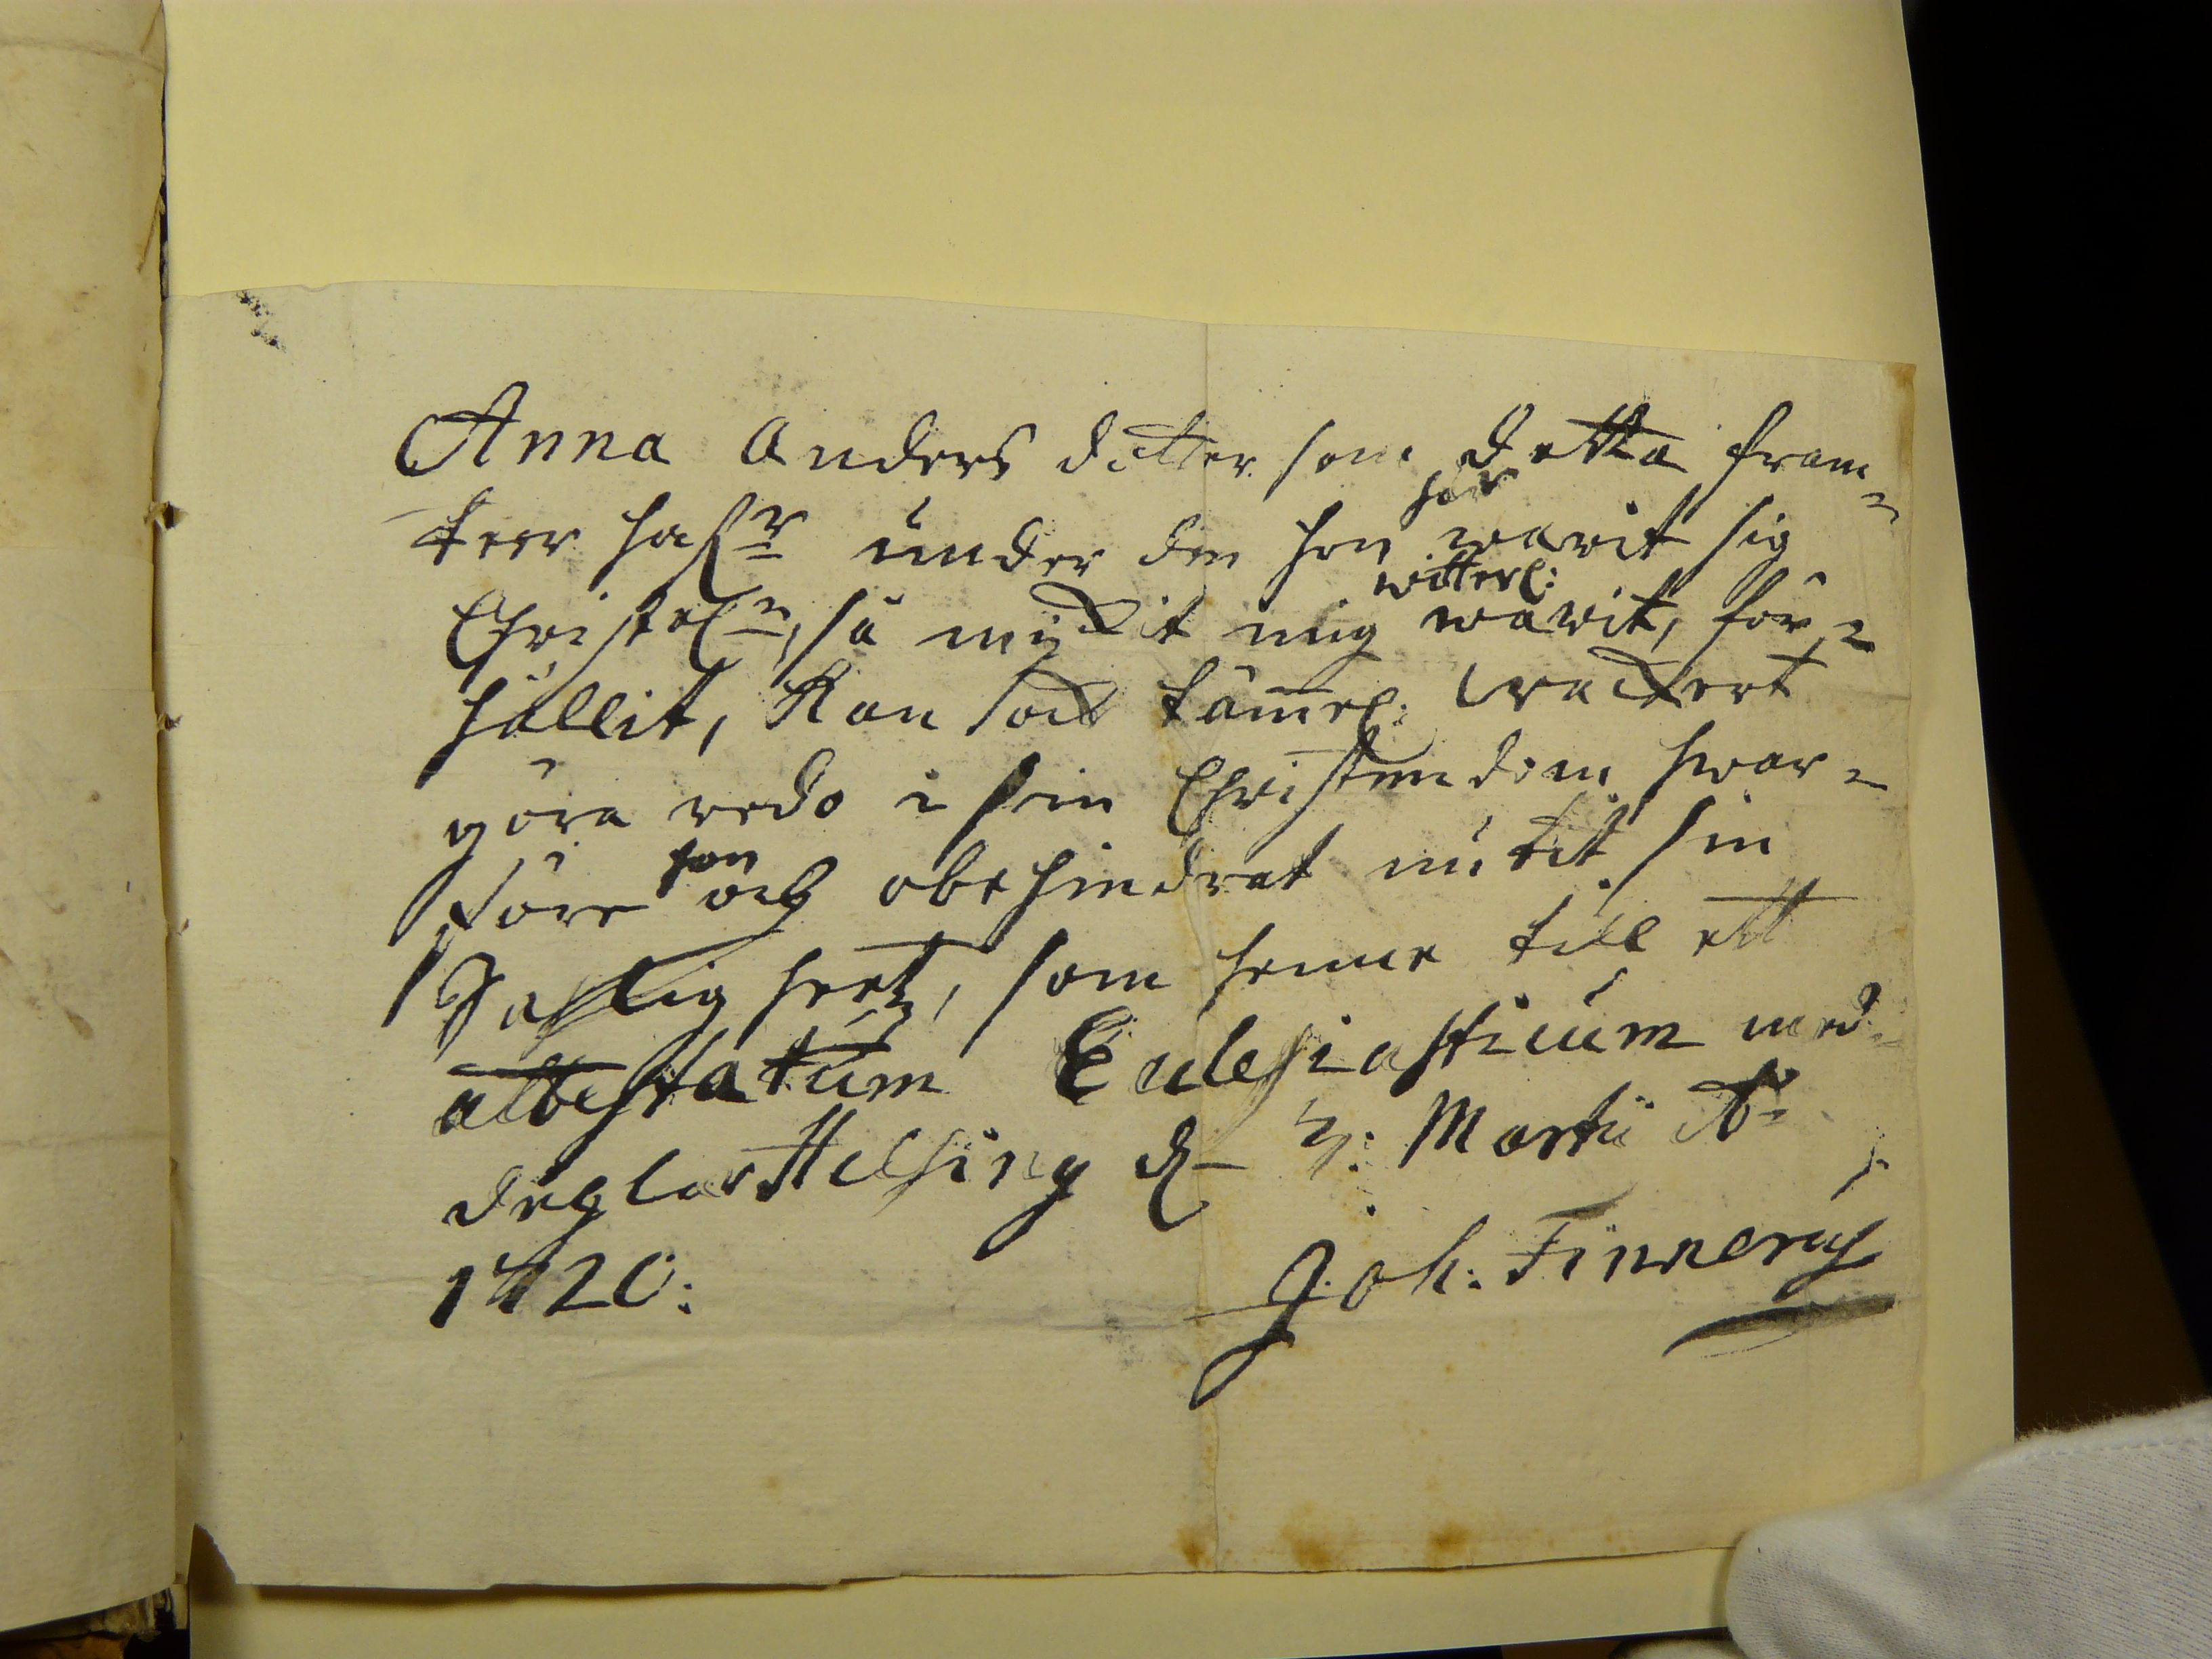 Anna Anders dåtter som detta fram-
teer haf:r under den hon här warit sig
Christel:n, så myckit mig witterl: warit, för-
hållit, Kan ock täm̄el: wackert
göra redo i sin Christendom hwar-
före hon och obehindrat nutit sin
Saligheet, som henne till ett
attestatum Ecclesiasticum med-
deelas Helsing d. 7: Martii Ao
1720:
Joh: Finnerus